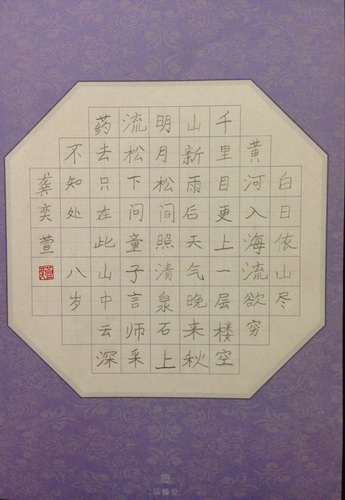 白日依山尽
黄河入海流欲穷
千里目更上一层楼空
山新雨后天气晚来秋
明月松间照清泉石上
流松下问童子言师采
药去只在此山中云深
不知处 八岁
龚奕萱